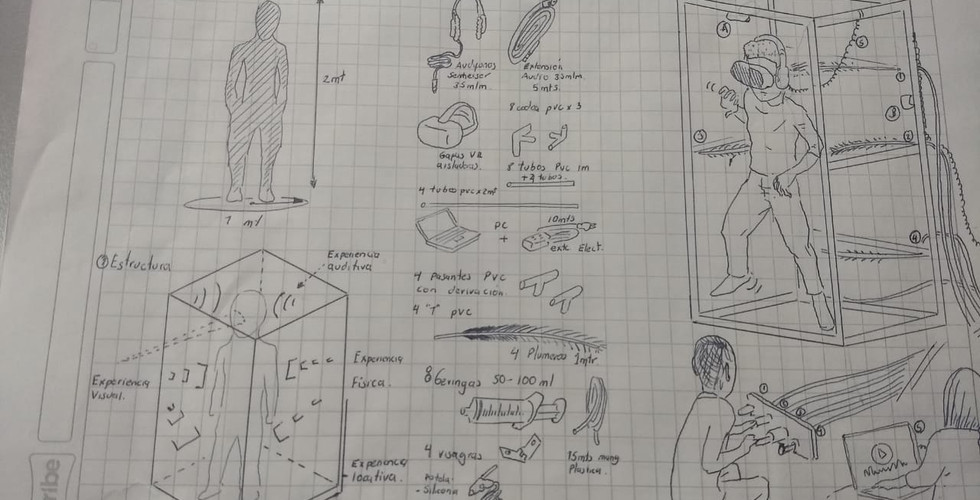 2mt
1 mt
② Estructura
Experiencia
auditiva
Experiencia
Visual.
Experiencia
Física.
Experiencia
locativa
Audífonos
Senheiser
35mlm.
Extension
Audio 35mlm.
5 mts.
8 codos pvc x 3
Gafas VR
aisladoras.
8 tubos Pvc 1m
+ 2 tubos.
4 tubos pvc x 2mt
PC
+
10mts
exte Elect.
4 Pasantes PVC
con derivación.
4 "T" pvc
4 Plumeros 1mtr
8 Geringas 50-100 ml
4 visagras
15mts mang
Plastica.
- Silicona
①
②
③
④
⑤
①
④
⑤
ribe